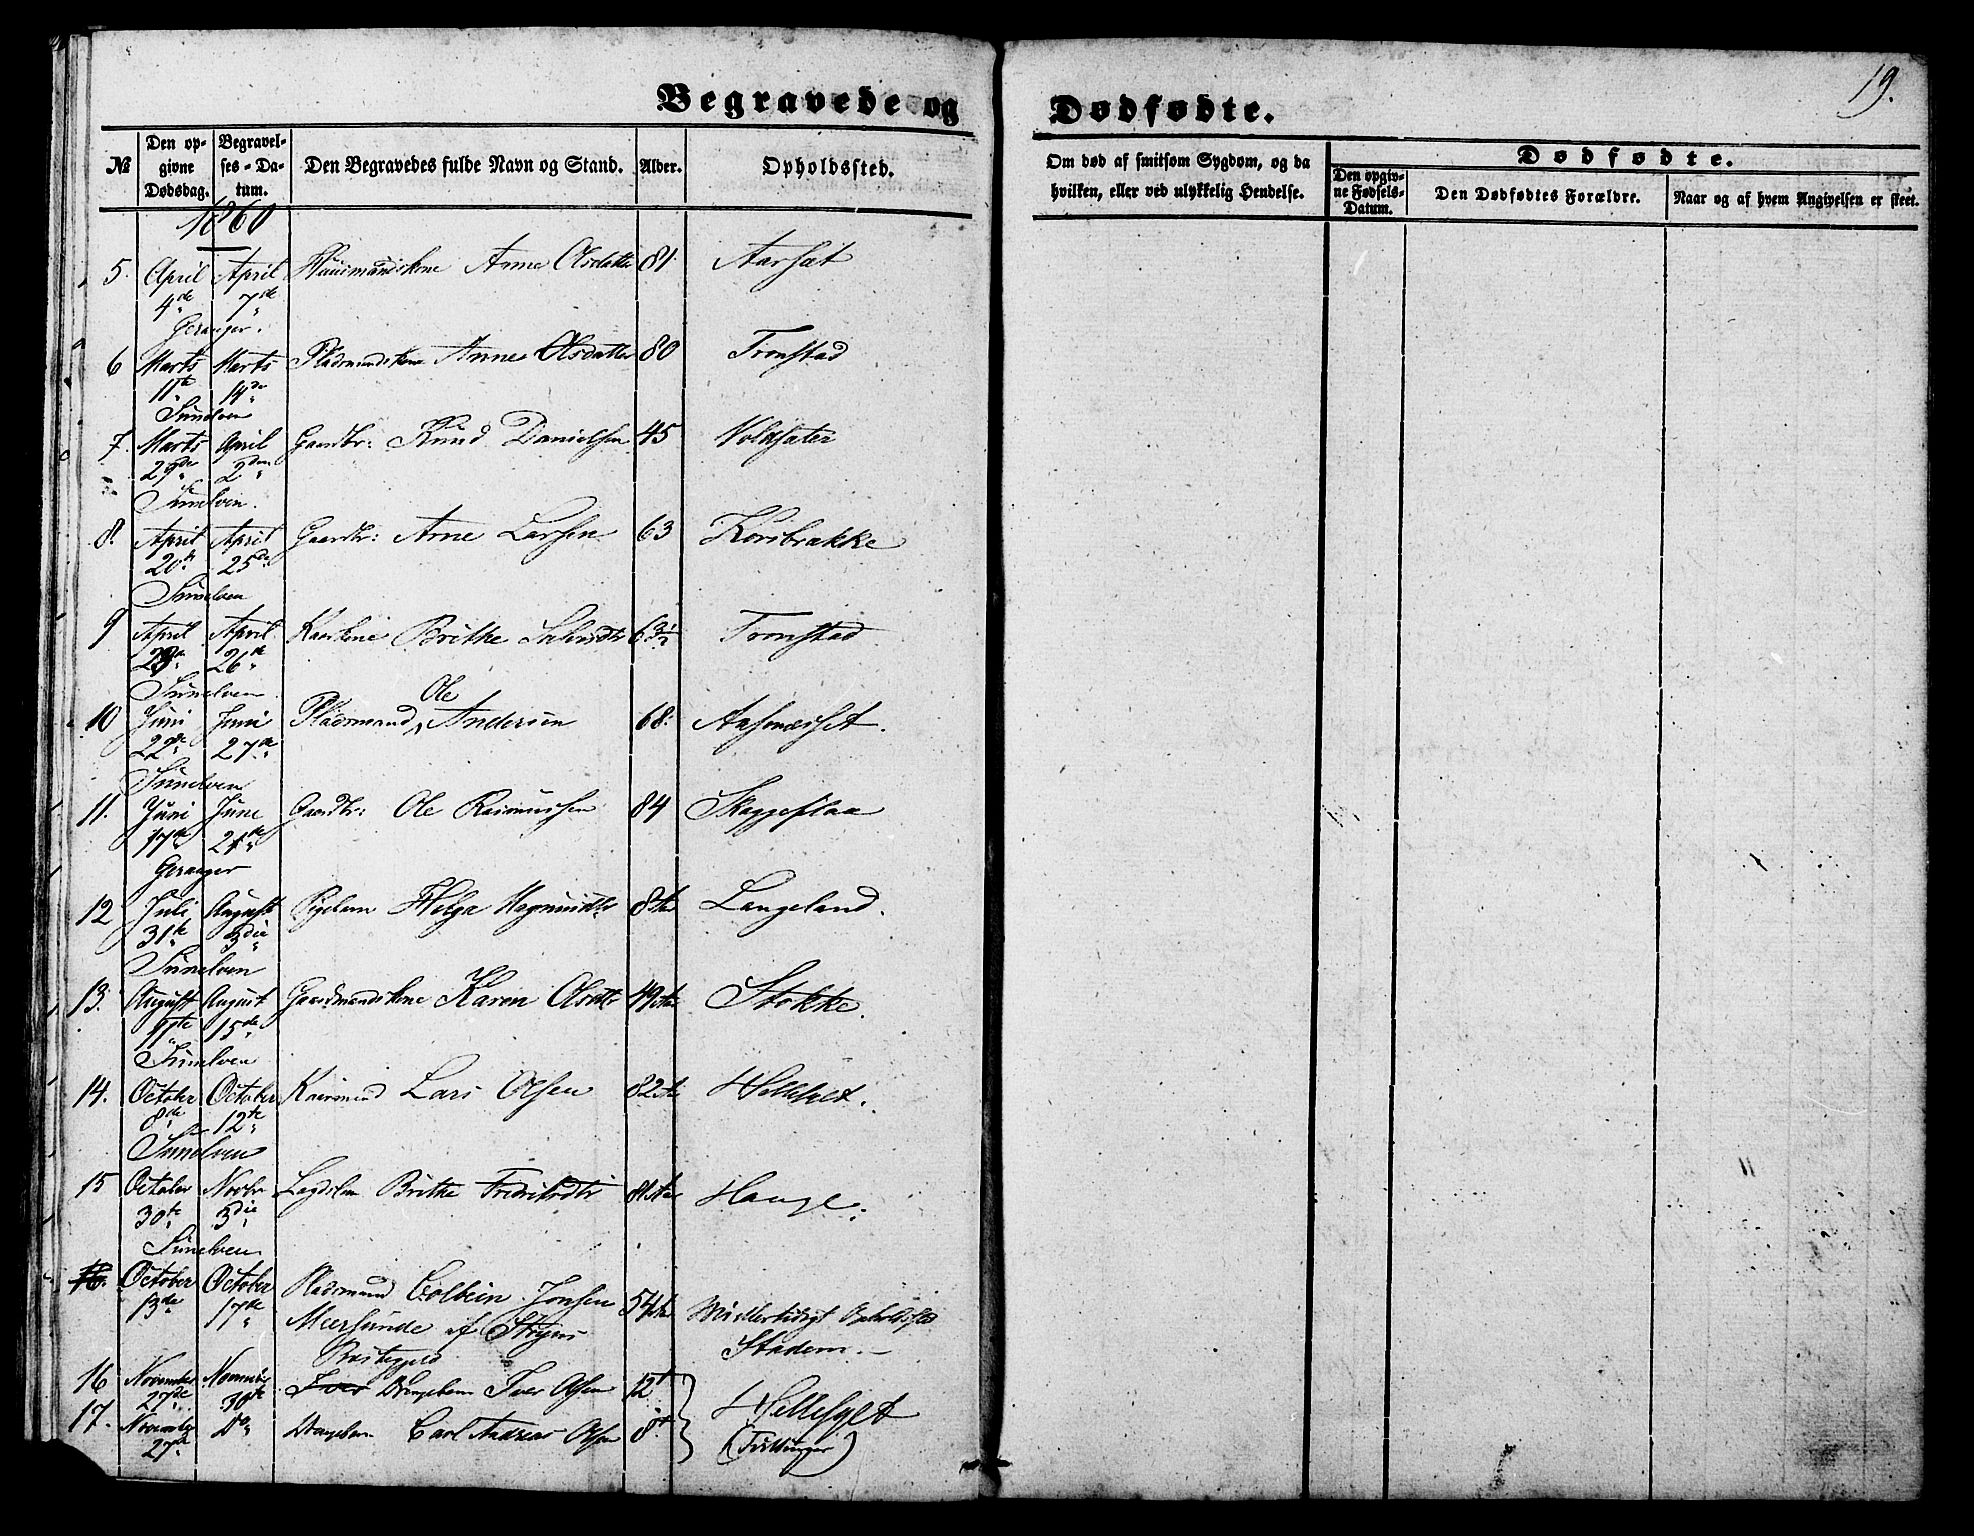 Begravede og Dødfødte.
19.
№ Den opgivne Dødsdag. Begravelses-Datum. Den Begravedes fulde Navn og Stand. Alder. Opholdssted. Om død af smitsom Sygdom, og da hvilken, eller ved ulykkelig Hendelse. Dødfødte. Den opgivne Fødsels-Datum. Den Dødfødtes Forældre. Naar og af hvem Angivelsen er skeet.
1860
5. April April Huusmandskone Anne Olsdatter 81. Aarsæt
4de 7de
Geranger.
6 Marts Marts Pladsmandskone Anne Olsdatter 80 Tronstad
11te 14de
Sunelven
7. Marts April Gaardbr: Knud Danielsen 45 Voldsæter
29de 2den
Sunelven.
8. April April Gaardbr: Arne Larsen 63 Korsbrække
20de 25de
Sunelven
9 April April Kaarkone Brithe 63½ Tronstad
23de 26de
Sunelven
Ole
10 Juni Juni Pladsmand Andersen 68.
22de 27de
Sunelven
11. Juni June Gaardbr: Ole Rasmussen 84 Skaggeflaa
17de 21de
Geranger
12 Juli August Pigebarn Helga 8 Langeland.
31te 3die
Sunelven
13. August August Gaardmandskone Karen Olsdtr 49 Stokke.
11te 15de
Sunelven
14. October October Lars Olsen 82 Hellesylt.
8de 12te
Sunelven
15 October Novbr Lægdslem Brithe 81 Hauge.
30te 3die
Sunelven
16. October October Pladsmand Colbein Jonsen 54 Midlertidigt Opholdssted
13de 17de af Stryens Stadem.
Præstegjeld
16 November November Drengebarn Iver Olsen 12 Hellesylt
27de 30te
17. November Do Drengebarn Carl Andreas Olsen 8 (Tvillinger)
27de